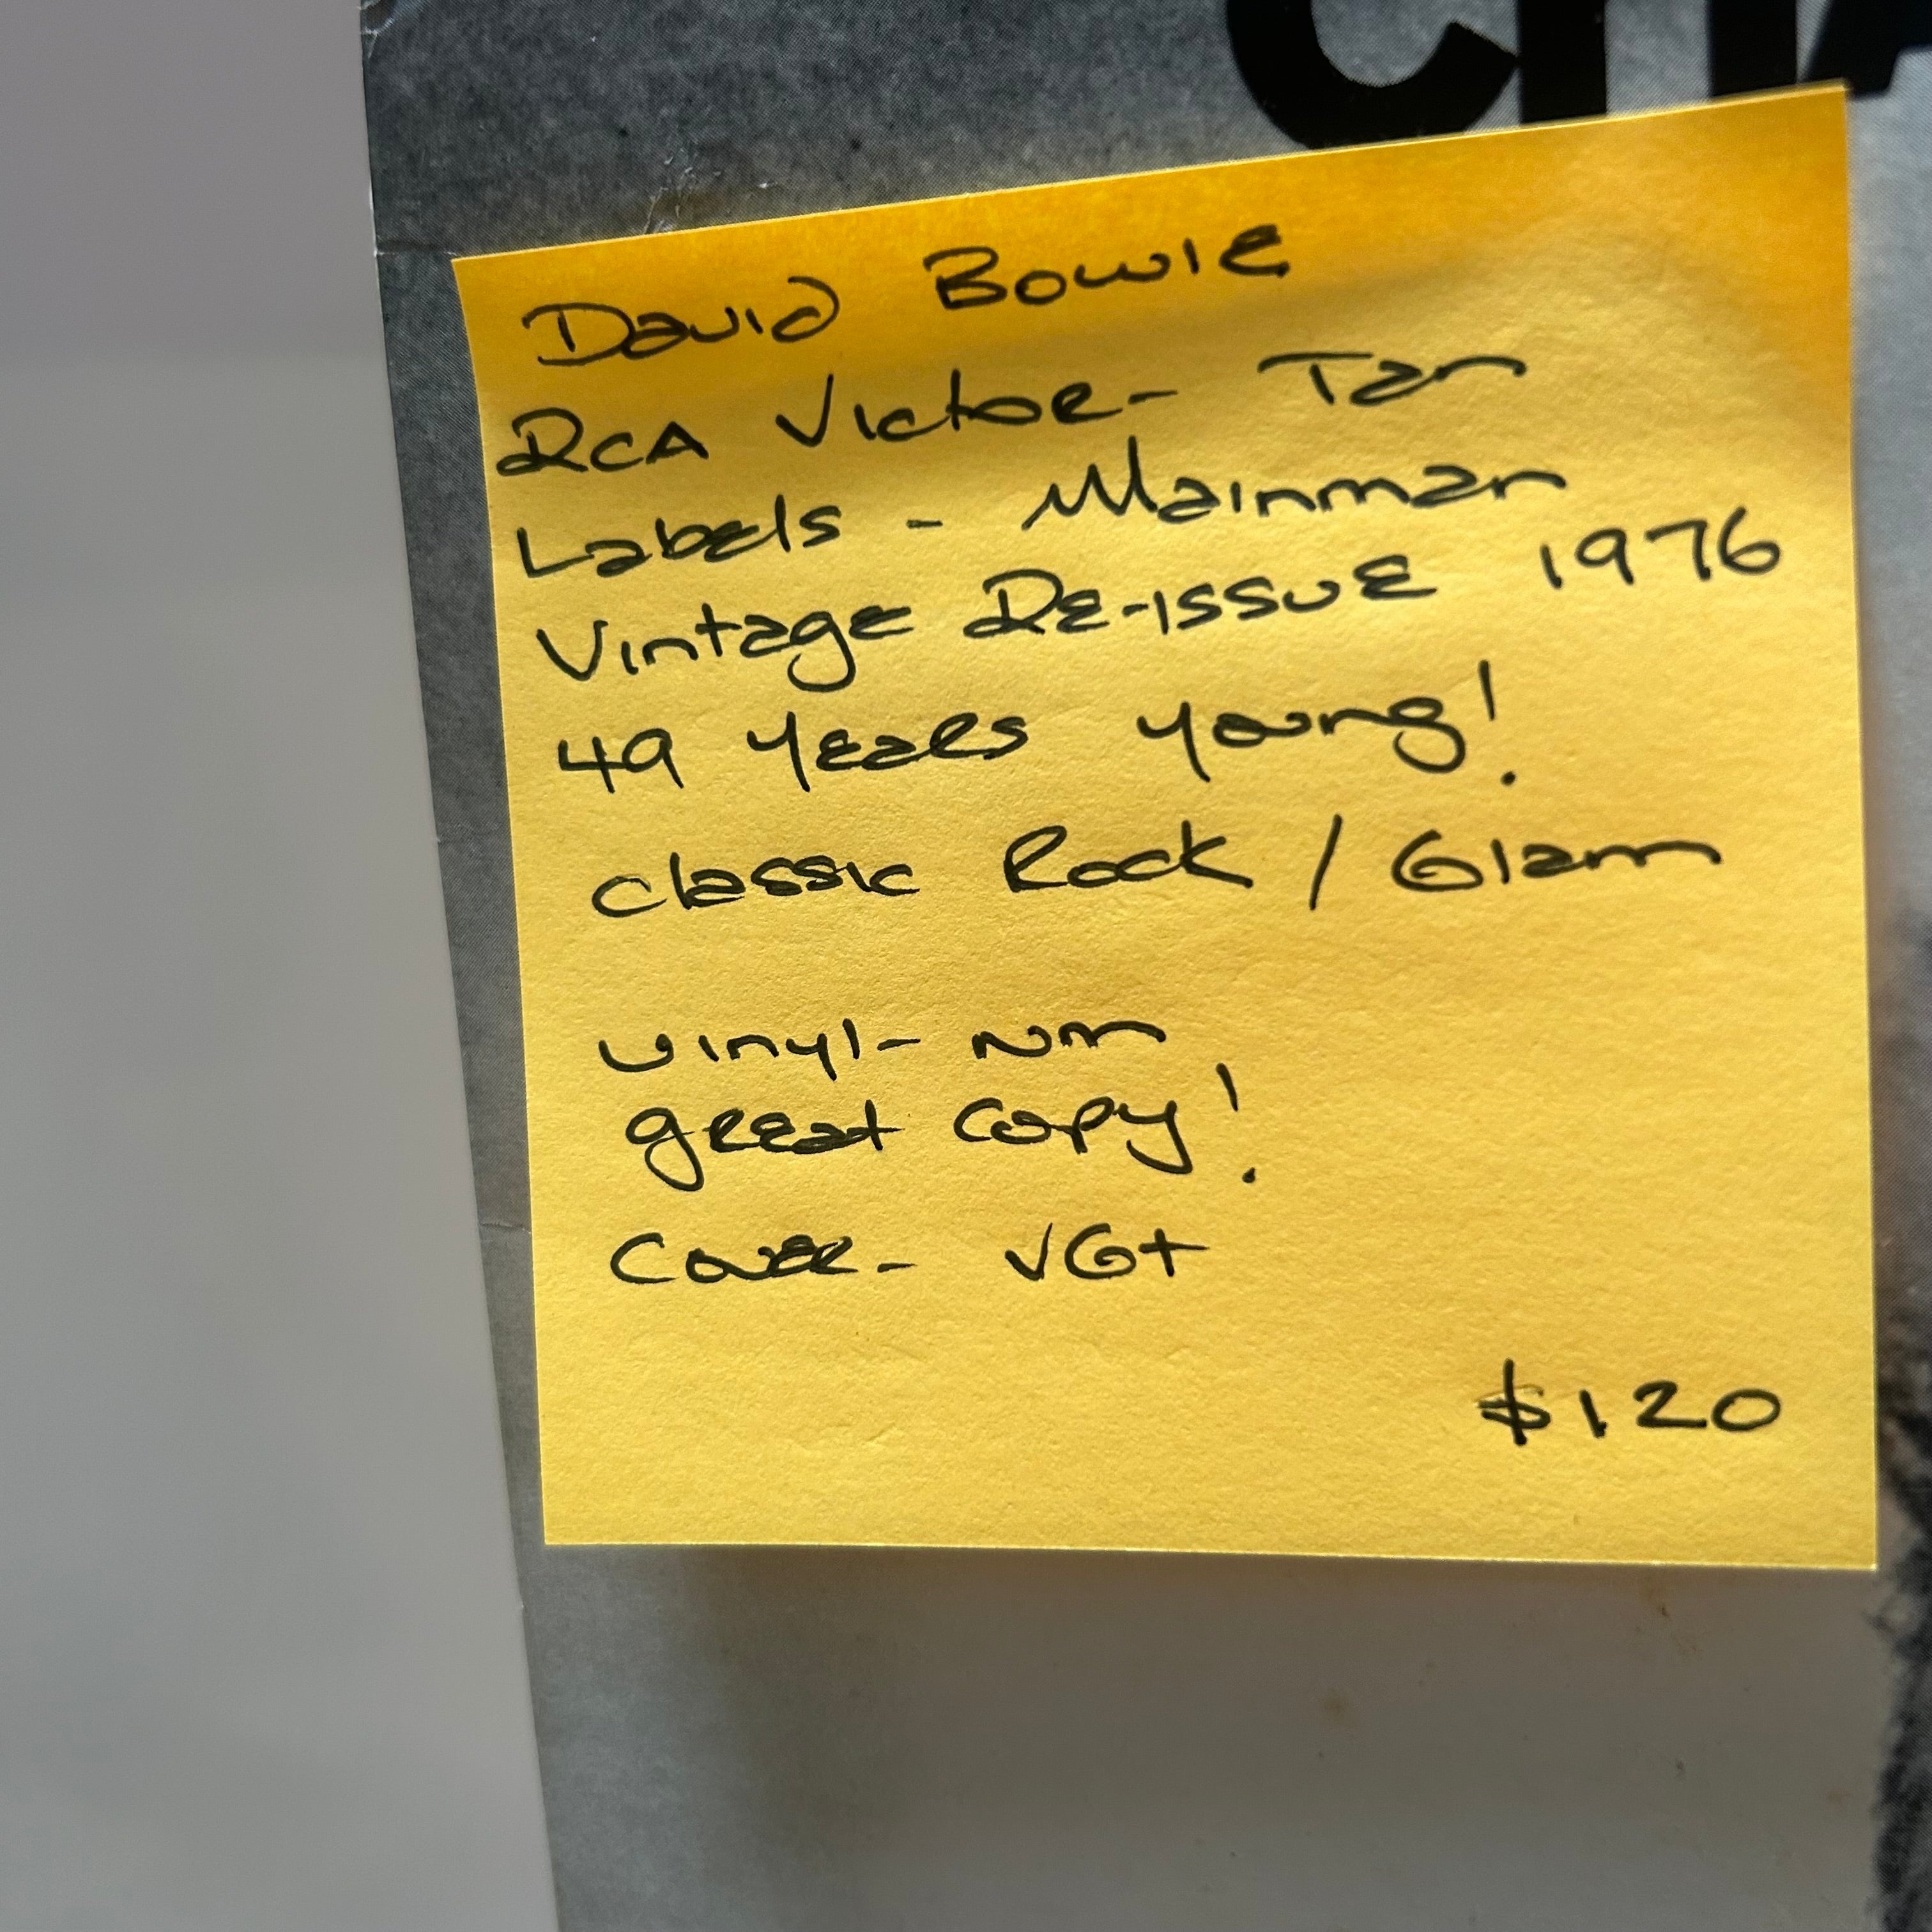 CHA
David Bowie
RCA Victor - Tan
Labels - Mainman
Vintage Re-issue 1976
49 years young!
Classic Rock / Glam
vinyl - NM
great copy!
Cover - VG+
$120